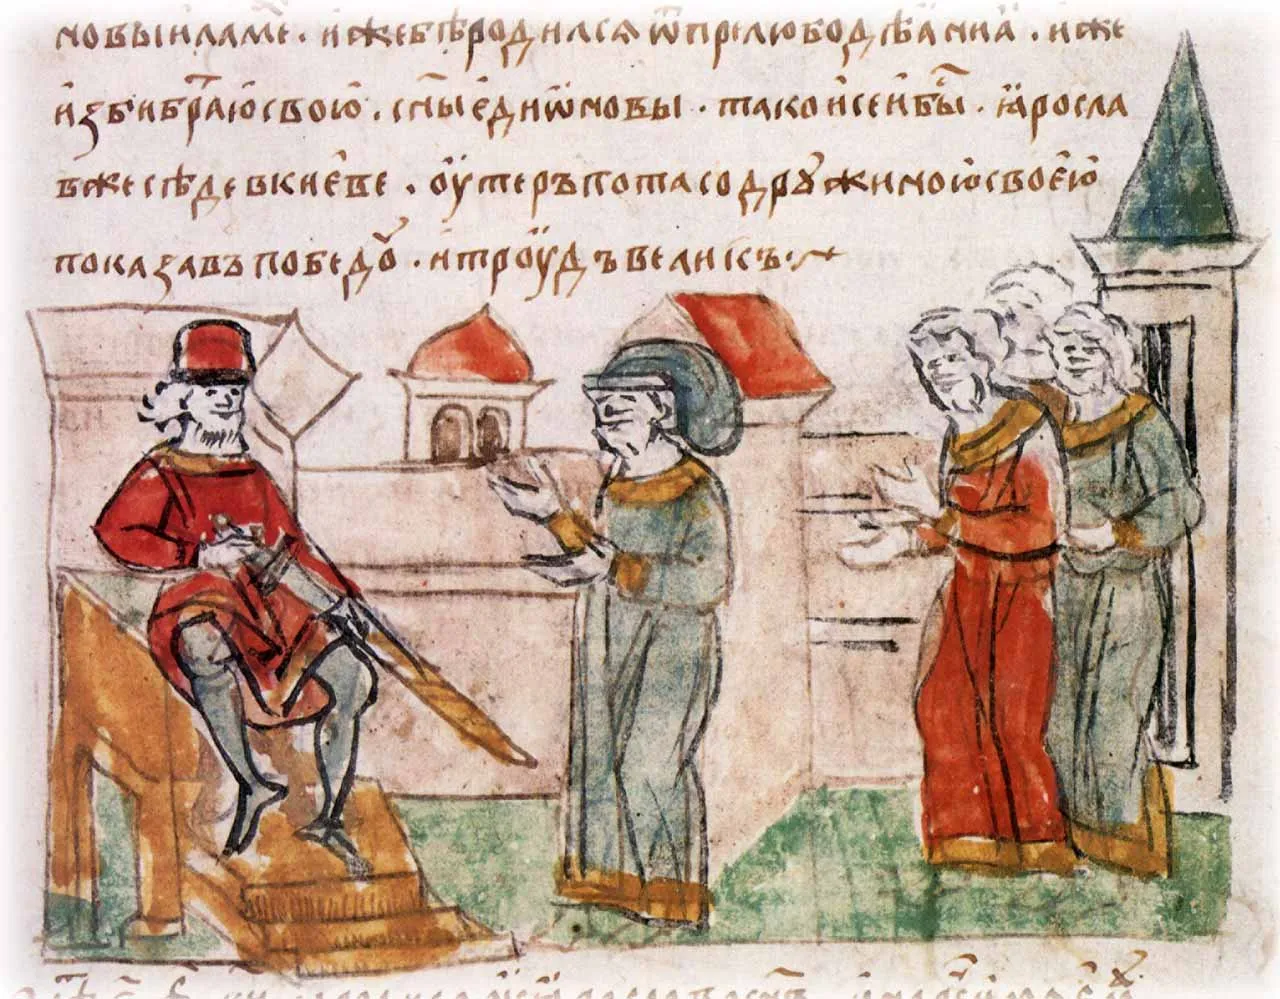 новыи ламе҃. и иже бѣ родилсѧ ѿ прелюбодѣаниа. иже
изби братїю свою. сн҃ы едиѡновы. тако и сей бы҃. ꙗросла
в же сѣде в киеве. оутеръ пота со дрꙋжиною своею
показавъ победꙋ. и троудъ великъ.